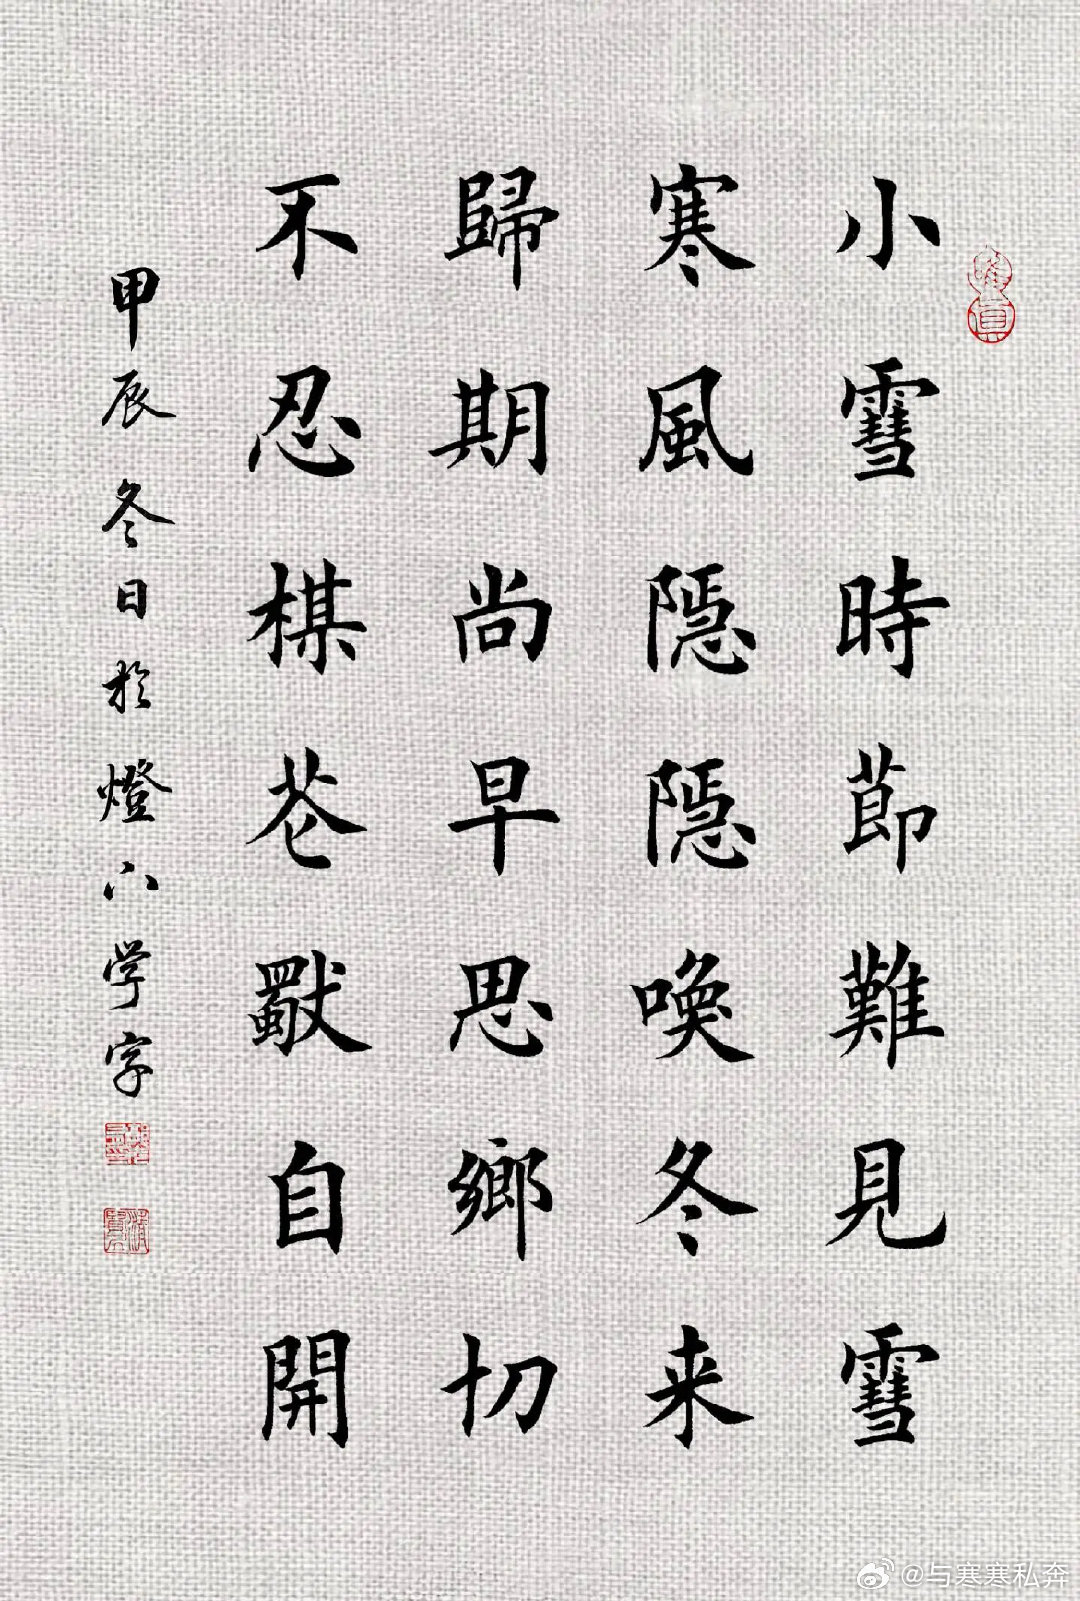 小雪時節難見雪
寒風隱隱喚冬来
歸期尚早思鄉切
不忍楳花獨自開
甲辰冬日於燈下学字
@与寒寒私奔